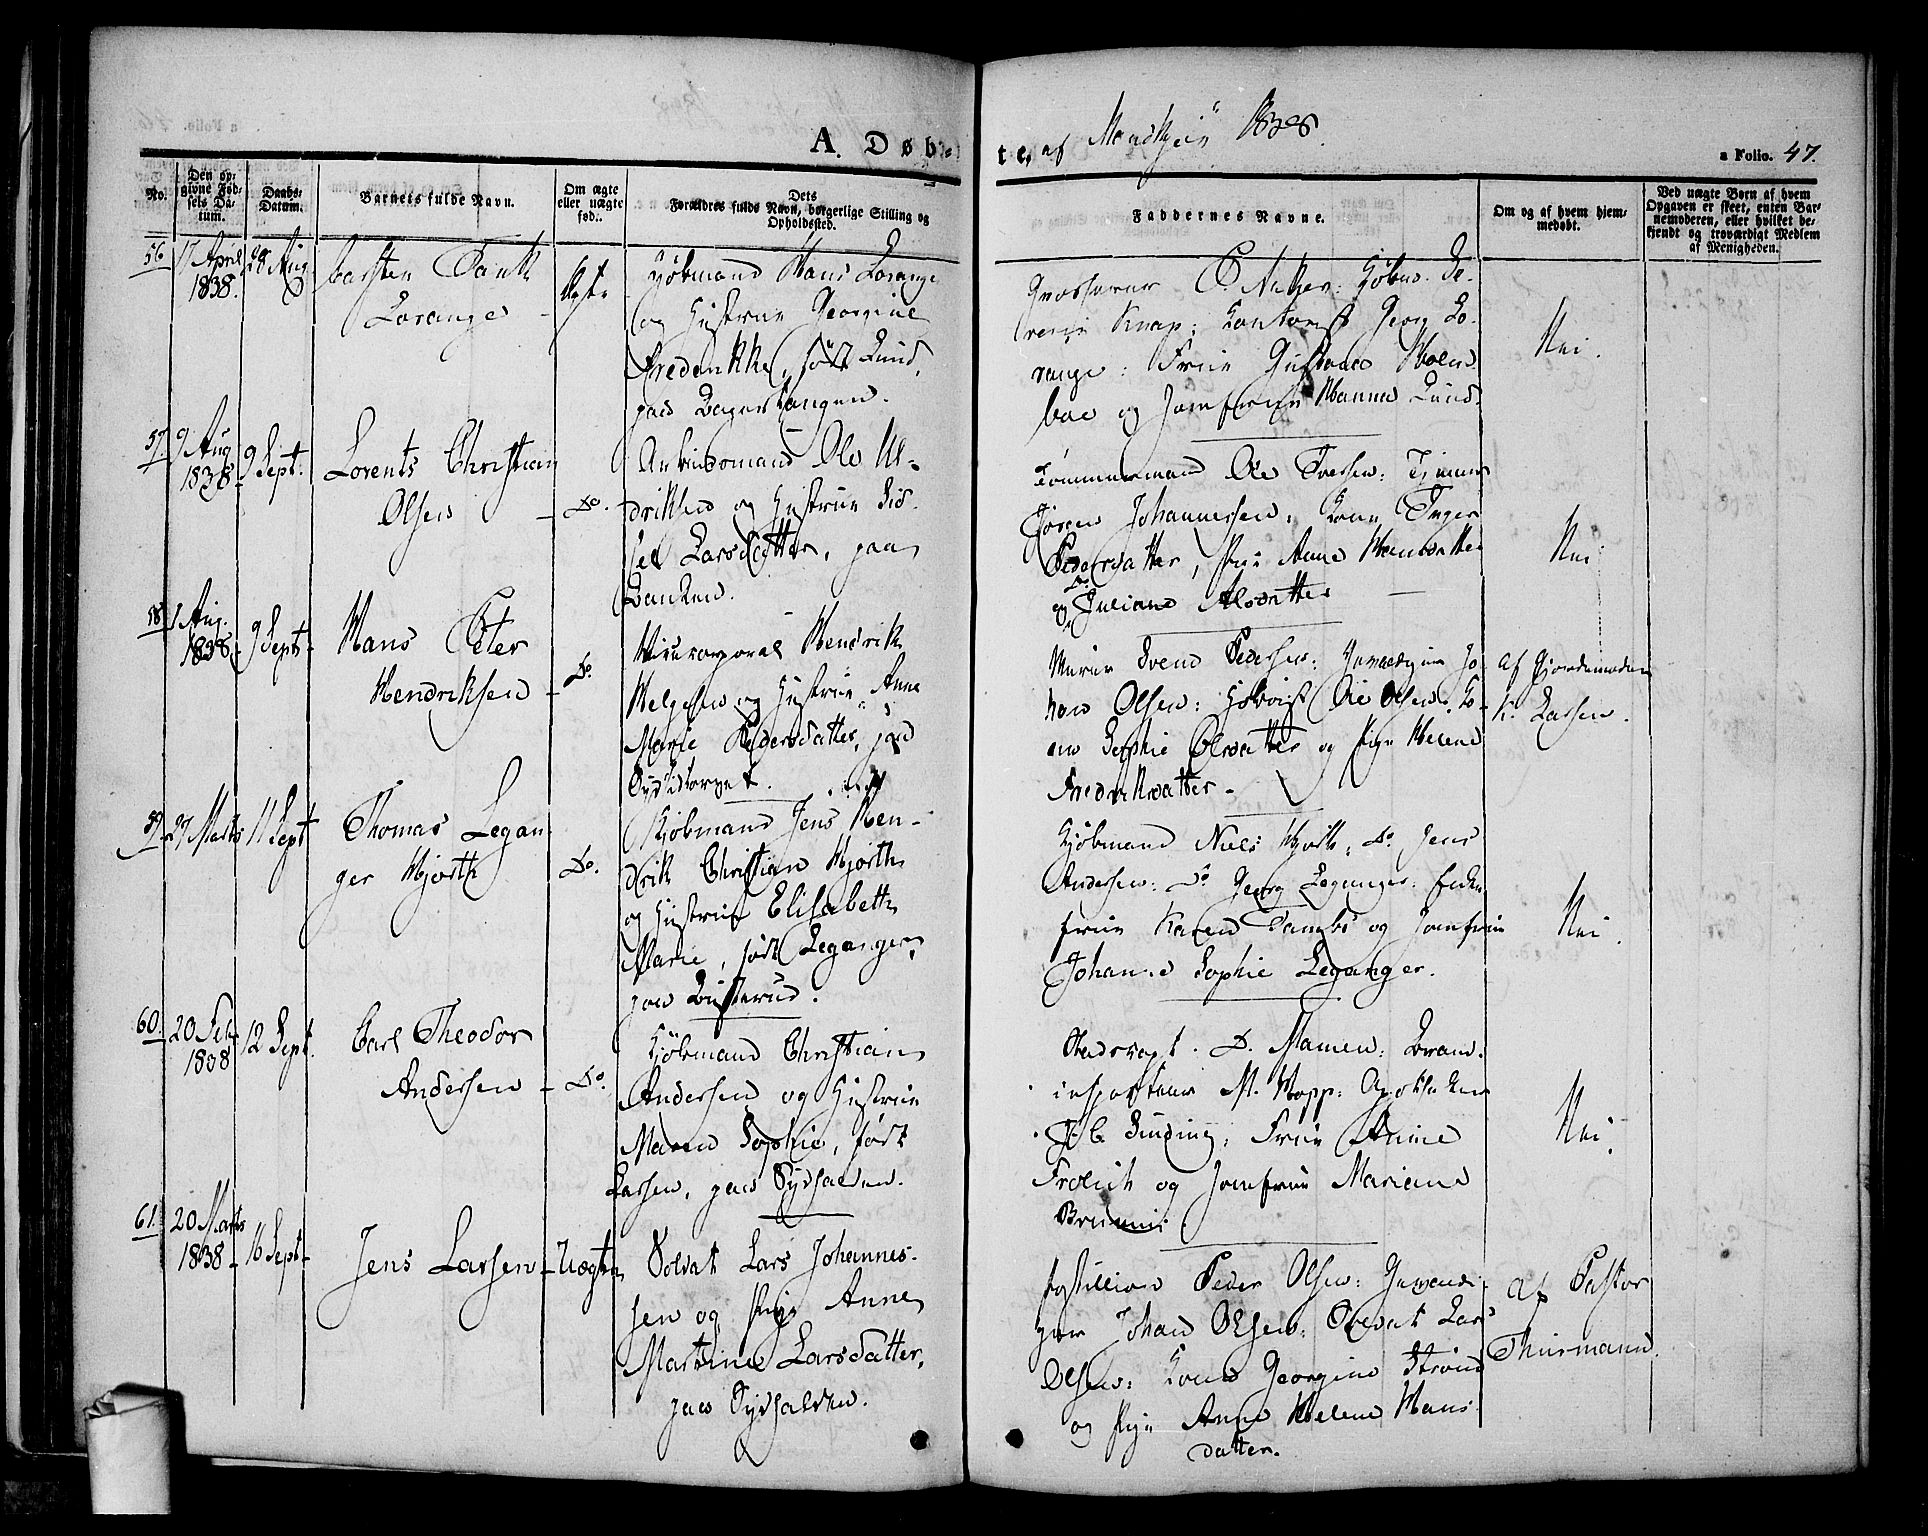 A. Døbte, af Mandkjön 1838.
a Folio. 47.
No.
Den opgivne Fødsels Datum.
Daabs-Datum.
Barnets fulde Navn.
Om ægte eller uægte fød.
Forældres fulde Navn, borgerlige Stilling og Opholdssted.
Faddernes Navne.
Om og af hvem hjemmedøbt.
Ved uægte Børn af hvem Opgaven er skeet, enten Barnemoderen, eller hvilket bekjendt og troværdigt Medlem af Menigheden.
56 17 April 1838. 28 Aug.
Carsten Tank
Lorange
Ægte
Kjöbmand Hans Lorange
og Hustrue Georgine
Fredrikke, född Lund,
paa
Grosserer P. Anker: Kjöbm.
Knap: Contorist Georg Lo-
range: Frue Gustava
og Jomfrue Hanna Lund.
Nei.
57. 9 Aug 1838 9 Sept.
Lorents Christian
Olsen
Do.
Arbeidsmand Ole Ul-
driksen og Hustrue Sid-
sel Larsdatter, paa
Banken.
Tömmermand Ole Iversen:
Jörgen Johannessen, Kone Inger
Pedersdatter, Pige Anne Hansdatter
og Do Juliane Alsdatter
Nei
58. 1 Aug. 1838. 9 Sept
Hans Peter
Hendriksen
Do.
Hendrik
Helgesen og Hustrue Anne
Marie Pedersdatter, paa
Sydsidtorget.
Murer Svend Pedersen: Jo-
han Olsen: Ole Olsen: Ko-
ne Sophie Olsdatter og Pige Helene
Fredriksdatter.
af Gjordemoder
K. Larsen.
59. 27 Marts 11 Sept
Thomas Legan-
ger Hjorth
Do.
Kjöbmand Jens Hen-
drik Christian Hjorth
og Hustrue Elisabeth
Marie, född Leganger,
paa Busterud.
Kjöbmand Niels Hjorth: Do Jens
Andersen: Do Georg Leganger:
frue Karen Tambs og Jomfrue
Johanne Sophie Leganger.
Nei.
60. 20 Feb 1838 12 Sept.
Carl Theodor
Andersen
Do.
Kjöbmand Christian
Andersen og Hustrue
Maren Sophie, född
Larsen, paa Sydhalden.
Stadsvagt. D. Mamen: Brand-
inspecteur M. Hopp: Apotheker
J. C. Sinding: Frue Anine
Frölich og Jomfrue Mariane
Nei.
61. 20 Marts 1838 16 Sept
Jens Larsen
Uægte
Soldat Lars Johannes-
sen og Pige Anne
Martine Larsdatter,
paa Sydhalden.
Postillion Peder Olsen:
Johan Olsen: Soldat Lars
Olsen: Kone Georgine Strönd
og Pige Anne Helene Hans
datter.
Af Pastor
Thurmann.